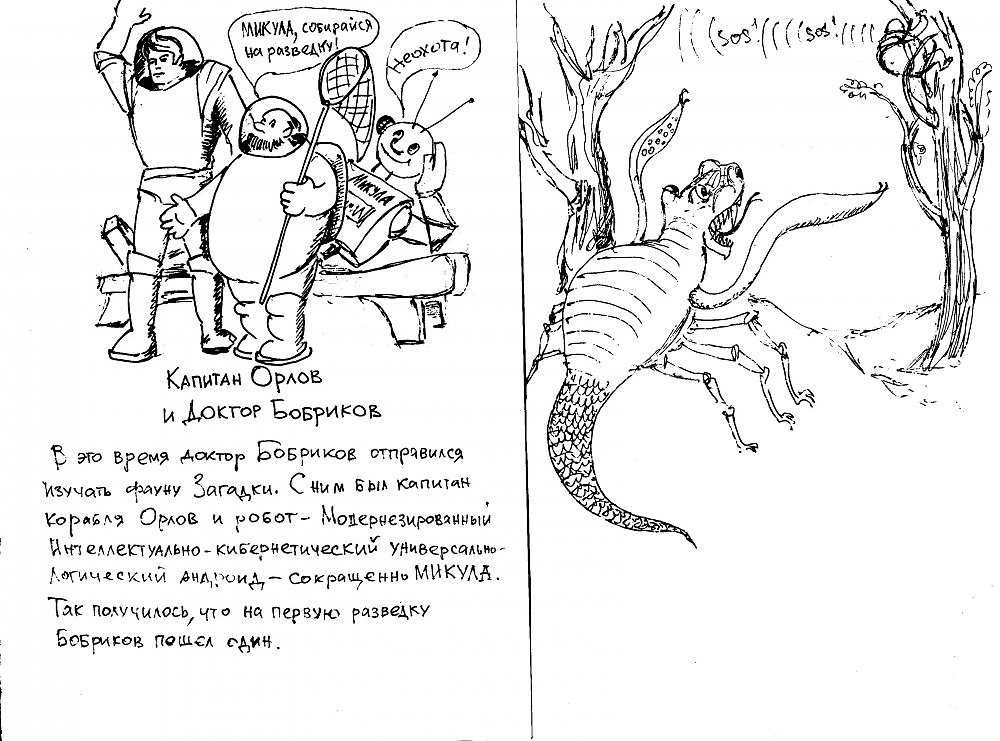 МИКУЛА, собирайся
на разведку!
Неохота!
МИКУЛА
КАПИТАН ОРЛОВ
И ДОКТОР БОБРИКОВ
В это время доктор Бобриков отправился
изучать фауну Загадки. С ним был капитан
корабля Орлов и робот – Модернезированный
Интеллектуально-кибернетический универсально-
логический андроид, – сокращенно МИКУЛА.
Так получилось, что на первую разведку
Бобриков пошел один.
SOS! SOS!